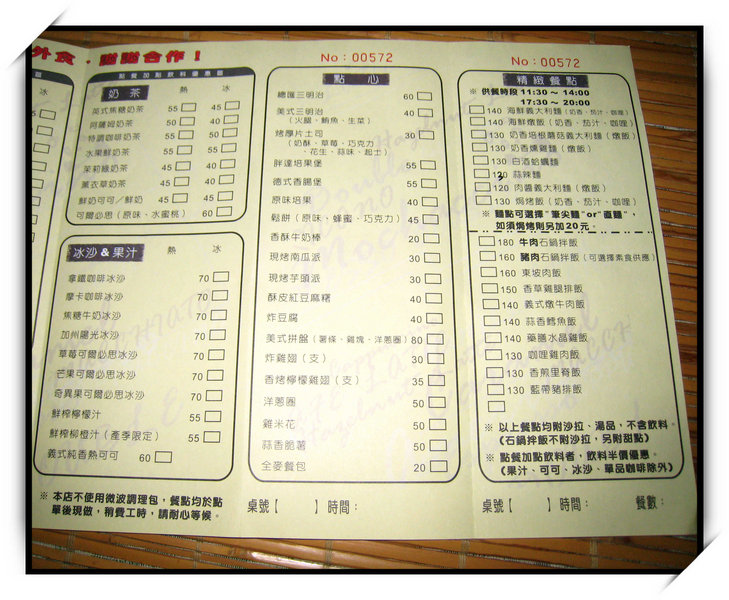 外食，謝謝合作！
點餐加點飲料優惠區
奶茶 熱 冰
英式焦糖奶茶 55 45
阿薩姆奶茶 50 40
特調咖啡奶茶 55 45
水果鮮奶茶 55 50
茉莉綠奶茶 45 40
薰衣草奶茶 45 50
鮮奶可可／鮮奶 45 40
可爾必思（原味、水蜜桃） 60
冰沙＆果汁 熱 冰
拿鐵咖啡冰沙 70
摩卡咖啡冰沙 70
焦糖牛奶冰沙 70
加州陽光冰沙 70
草莓可爾必思冰沙 70
芒果可爾必思冰沙 70
奇異果可爾必思冰沙 70
鮮榨檸檬汁 55
鮮榨柳橙汁（產季限定） 55
義式純香熱可可 60
※ 本店不使用微波調理包，餐點均於點
單後現做，稍費工時，請耐心等候。
No：00572
點心
總匯三明治 60
美式三明治 40
（火腿、鮪魚、生菜）
烤厚片土司 30
（奶酥、草莓、巧克力
、花生、蒜味、起士）
胖達培果堡 55
德式香腸堡 55
原味培果 40
鬆餅（原味、蜂蜜、巧克力） 45
香酥牛奶棒 20
現烤南瓜派 30
現烤芋頭派 30
酥皮紅豆麻糬 40
炸豆腐 40
美式拼盤（薯條、雞塊、洋蔥圈） 80
炸雞翅（支） 30
香烤檸檬雞翅（支） 35
洋蔥圈 50
雞米花 50
蒜香脆薯 50
全麥餐包 20
桌號【　　】時間：
No：00572
精緻餐點
※ 供餐時段 11:30～14:00
17:30～20:00
140 海鮮義大利麵（奶香、茄汁、咖哩）
140 海鮮燉飯（奶香、茄汁、咖哩）
130 奶香培根蘑菇義大利麵（燉飯）
130 奶香燻雞麵（燉飯）
130 白酒蛤蠣麵
蒜辣麵
120 肉醬義大利麵（燉飯）
130 焗烤飯（奶香、茄汁、咖哩）
※ 麵點可選擇"筆尖麵"or"直麵"，
如須焗烤則另加20元。
180 牛肉石鍋拌飯
160 豬肉石鍋拌飯（可選擇素食供應）
160 東坡肉飯
150 香草雞腿排飯
140 義式燉牛肉飯
140 蒜香鱈魚飯
140 藥膳水晶雞飯
130 咖哩雞肉飯
130 香煎里脊飯
130 藍帶豬排飯
※ 以上餐點均附沙拉、湯品，不含飲料。
（石鍋拌飯不附沙拉，另附甜點）
※ 點餐加點飲料者，飲料半價優惠。
（果汁、可可、冰沙、單品咖啡除外）
桌號【　　】時間：　　餐數：